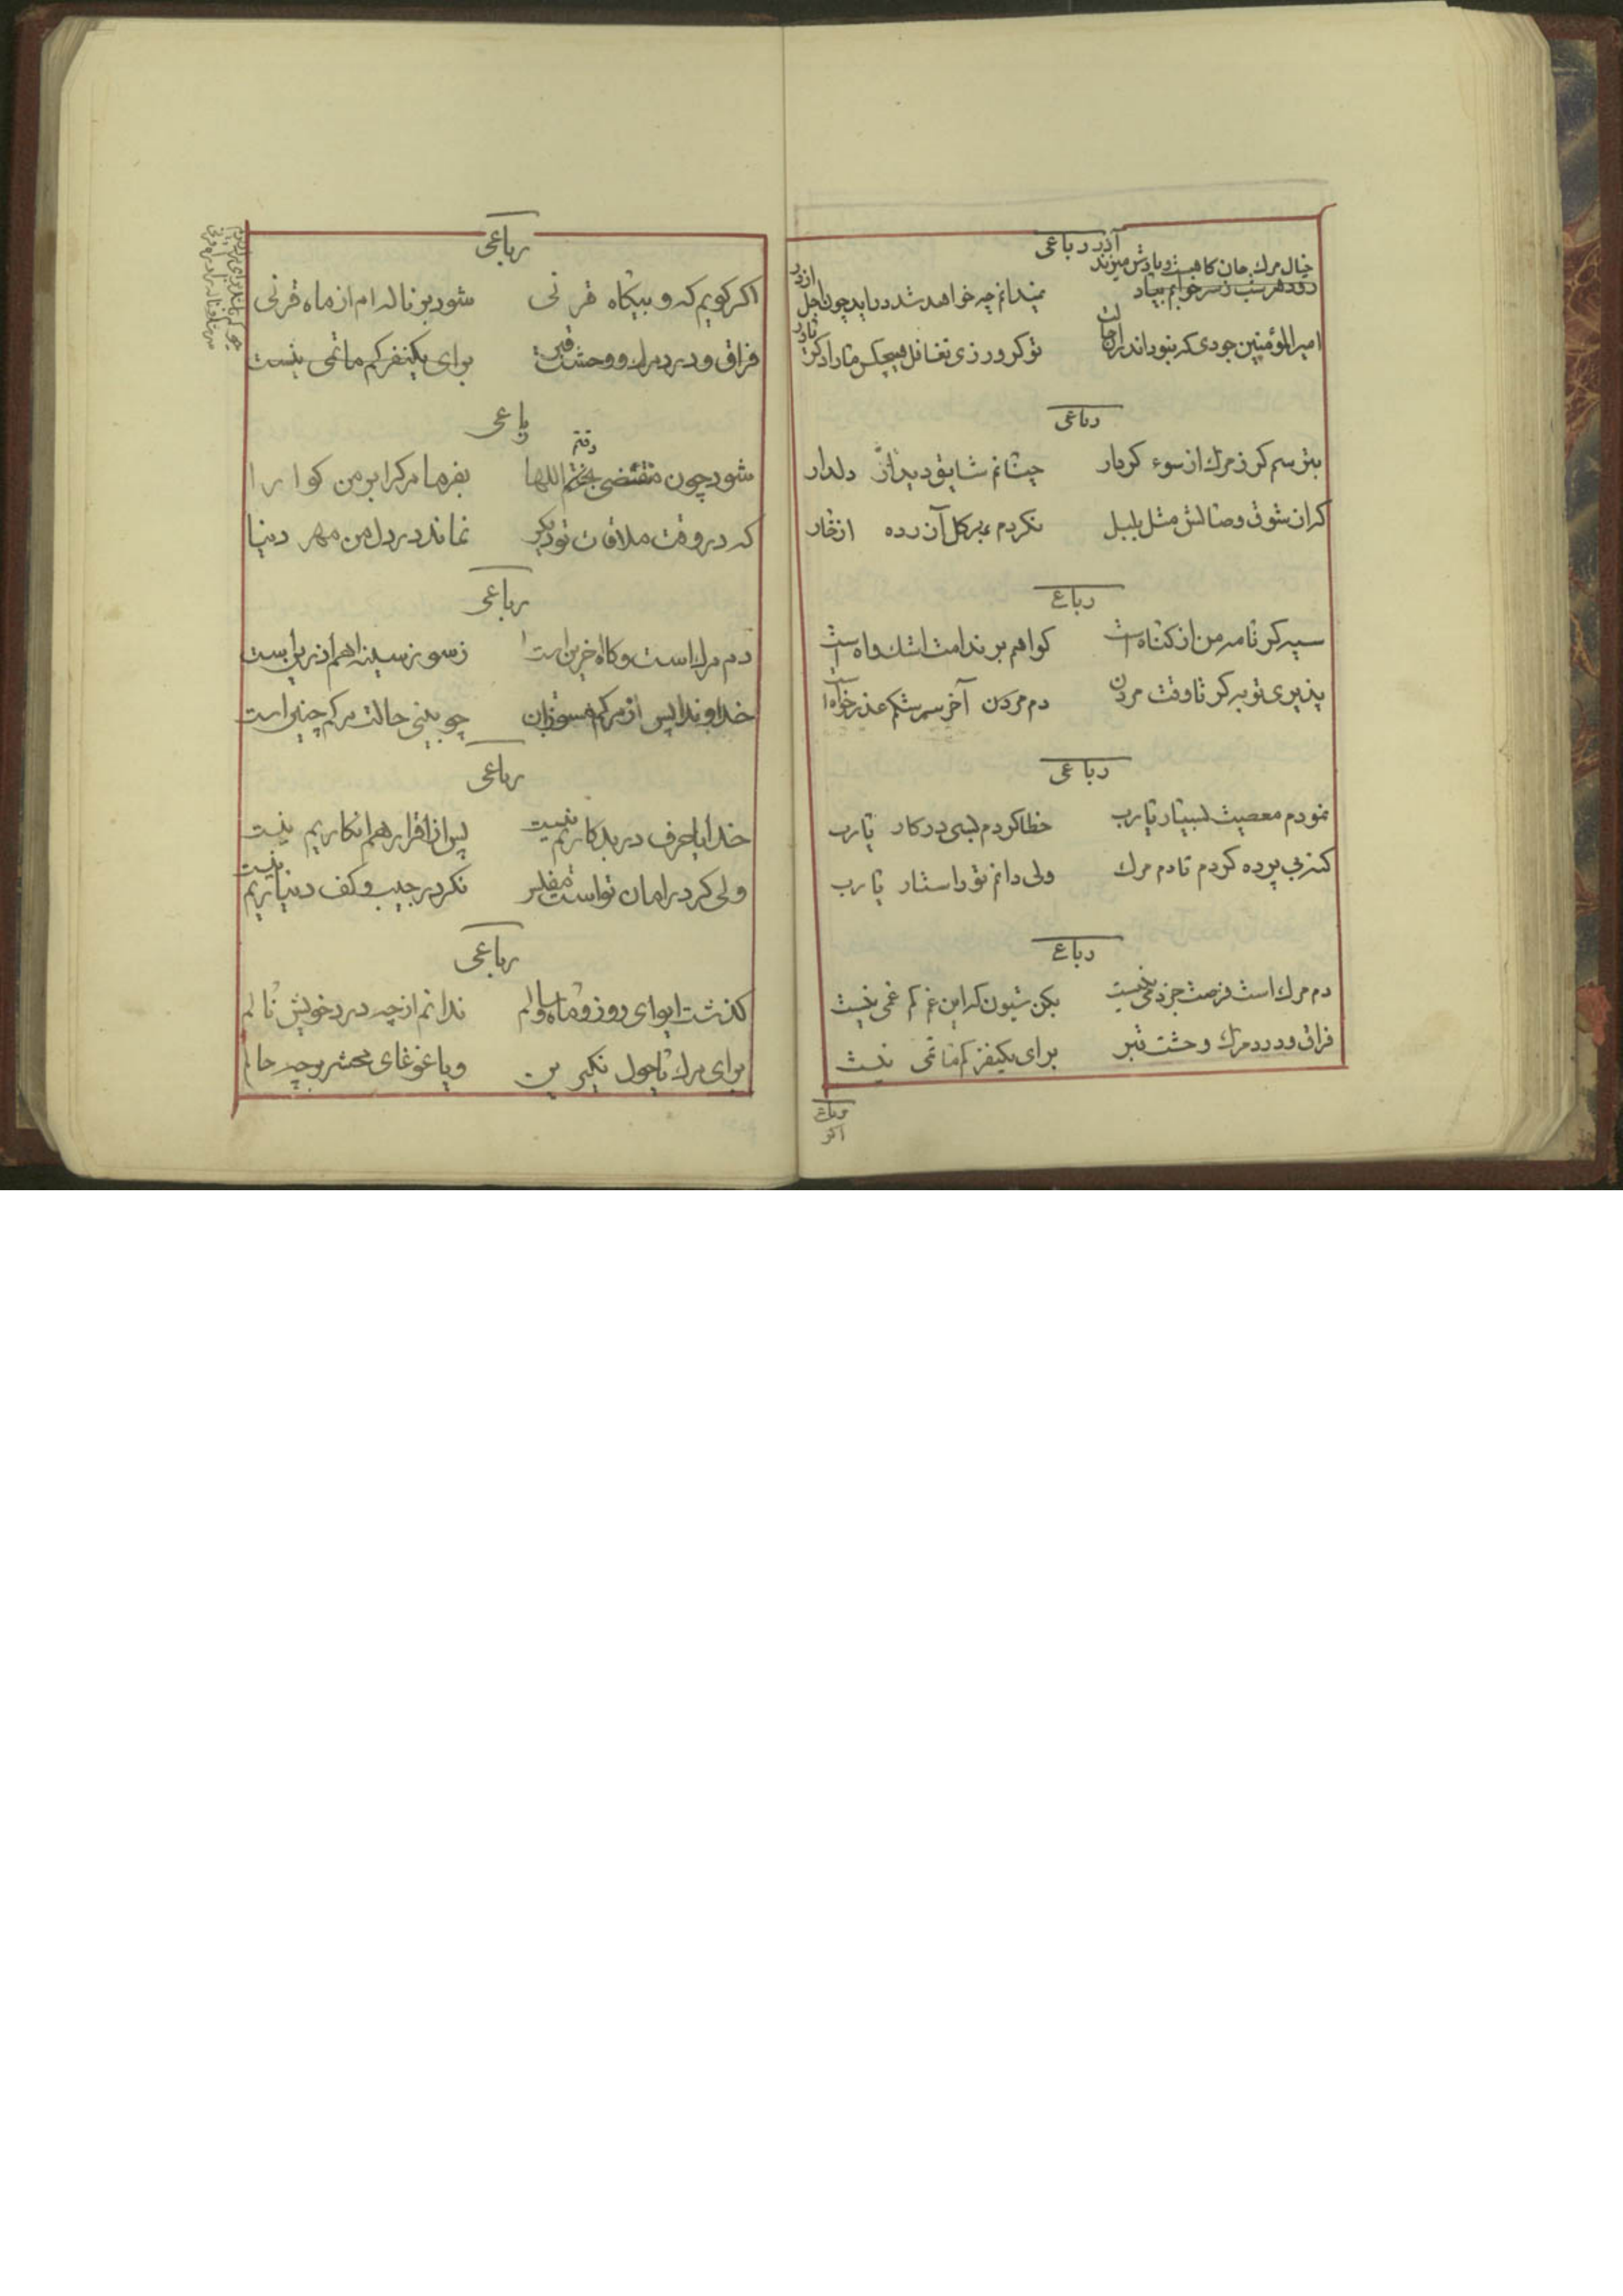 آذر رباعی
خیال مرك جان کاهست و یادش میزند
رود هر شب ز سر خوابم بیاد
نمیدانم چه خواهد شد در اید چون اجل از در
امیرالمؤمنین جودی که نبود اندران
تو کر ورزی تغافل هیچکس ما را دکر
رباعی
بترسم کر ز مرك از سوء کردار
چنانم شایق دیدار دلدار
کران شوق وصالش مثل بلبل
نکردم بر کل آزرده از خار
رباعے
سیه کر نامه من از کناه است
کواهم بر ندامت اشك و اه است
پذیری توبه کر تا وقت مردن
دم مردن آخر سرشکم عذر خواه است
رباعی
نمودم معصیت بسیار یا رب
خطا کردم بسی در کار یا رب
کنه بی پرده کردم تا دم مرك
ولی دانم تو را ستار یا رب
رباعے
دم مرك است فرصت جز دمی نیست
بکن شیون که این غم کم غمی نیست
فراق و درد مرك و حشت قبر
برای یکنفر کم ماتمی نیست
رباعی
اکر
رباعی
اکر کویم که و بیکاه قرنی
شود بر ناله ام از ماه قرنی
فراق و درد مرك و وحشت قبر
برای یکنفر کم ماتمی نیست
رباعی
شود چون مقتضی رفتن اللها
بفرما مرك را بر من کوارا
که در وقت ملاقات تو دیکر
نماند در دل من مهر دنیا
رباعی
دم مرك است و کاه اخرین است
ز سوز سینه اهم اذرین است
خداوندا پس از مرکم مسوزان
چو بینی حالت مرکم چنین است
رباعی
خدایا حرف در بد کاریم نیست
پس از اقرار هم انکاریم نیست
ولی کر در امان تواست مفلس
نکر در جیب و کف دنیاریم نیست
رباعی
کذشت ایوای روز و ماه و سالم
ندانم از چه درد خویش نالم
برای مرك یا حول نکیرین
و یا غوغای محشر و چه حالم